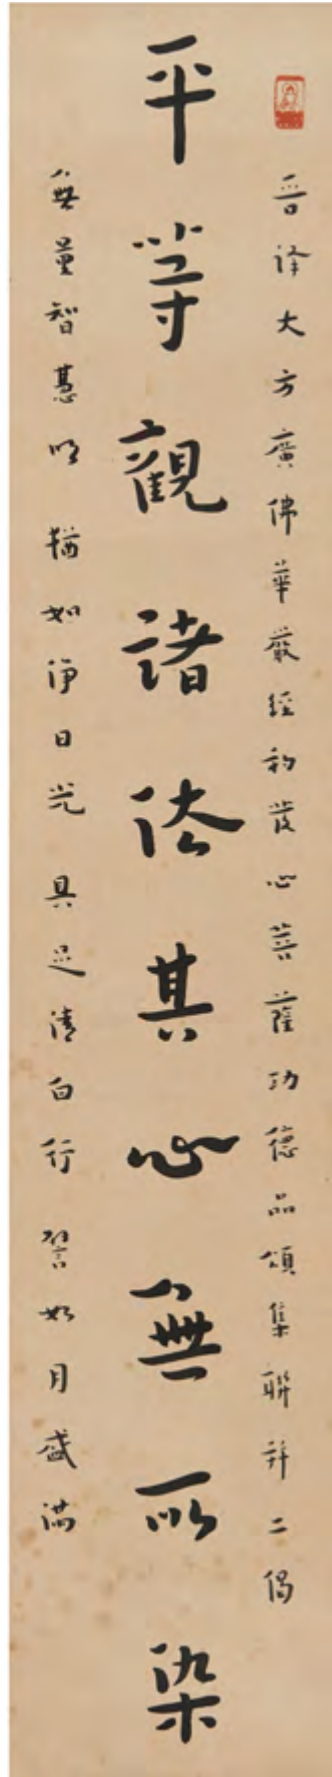 晉译大方廣佛華嚴經初發心菩薩功德品頌集聯并二偈
平等觀諸法其心無所染
無量智慧明 猶如淨日光 具足清白行 譬如月盛滿